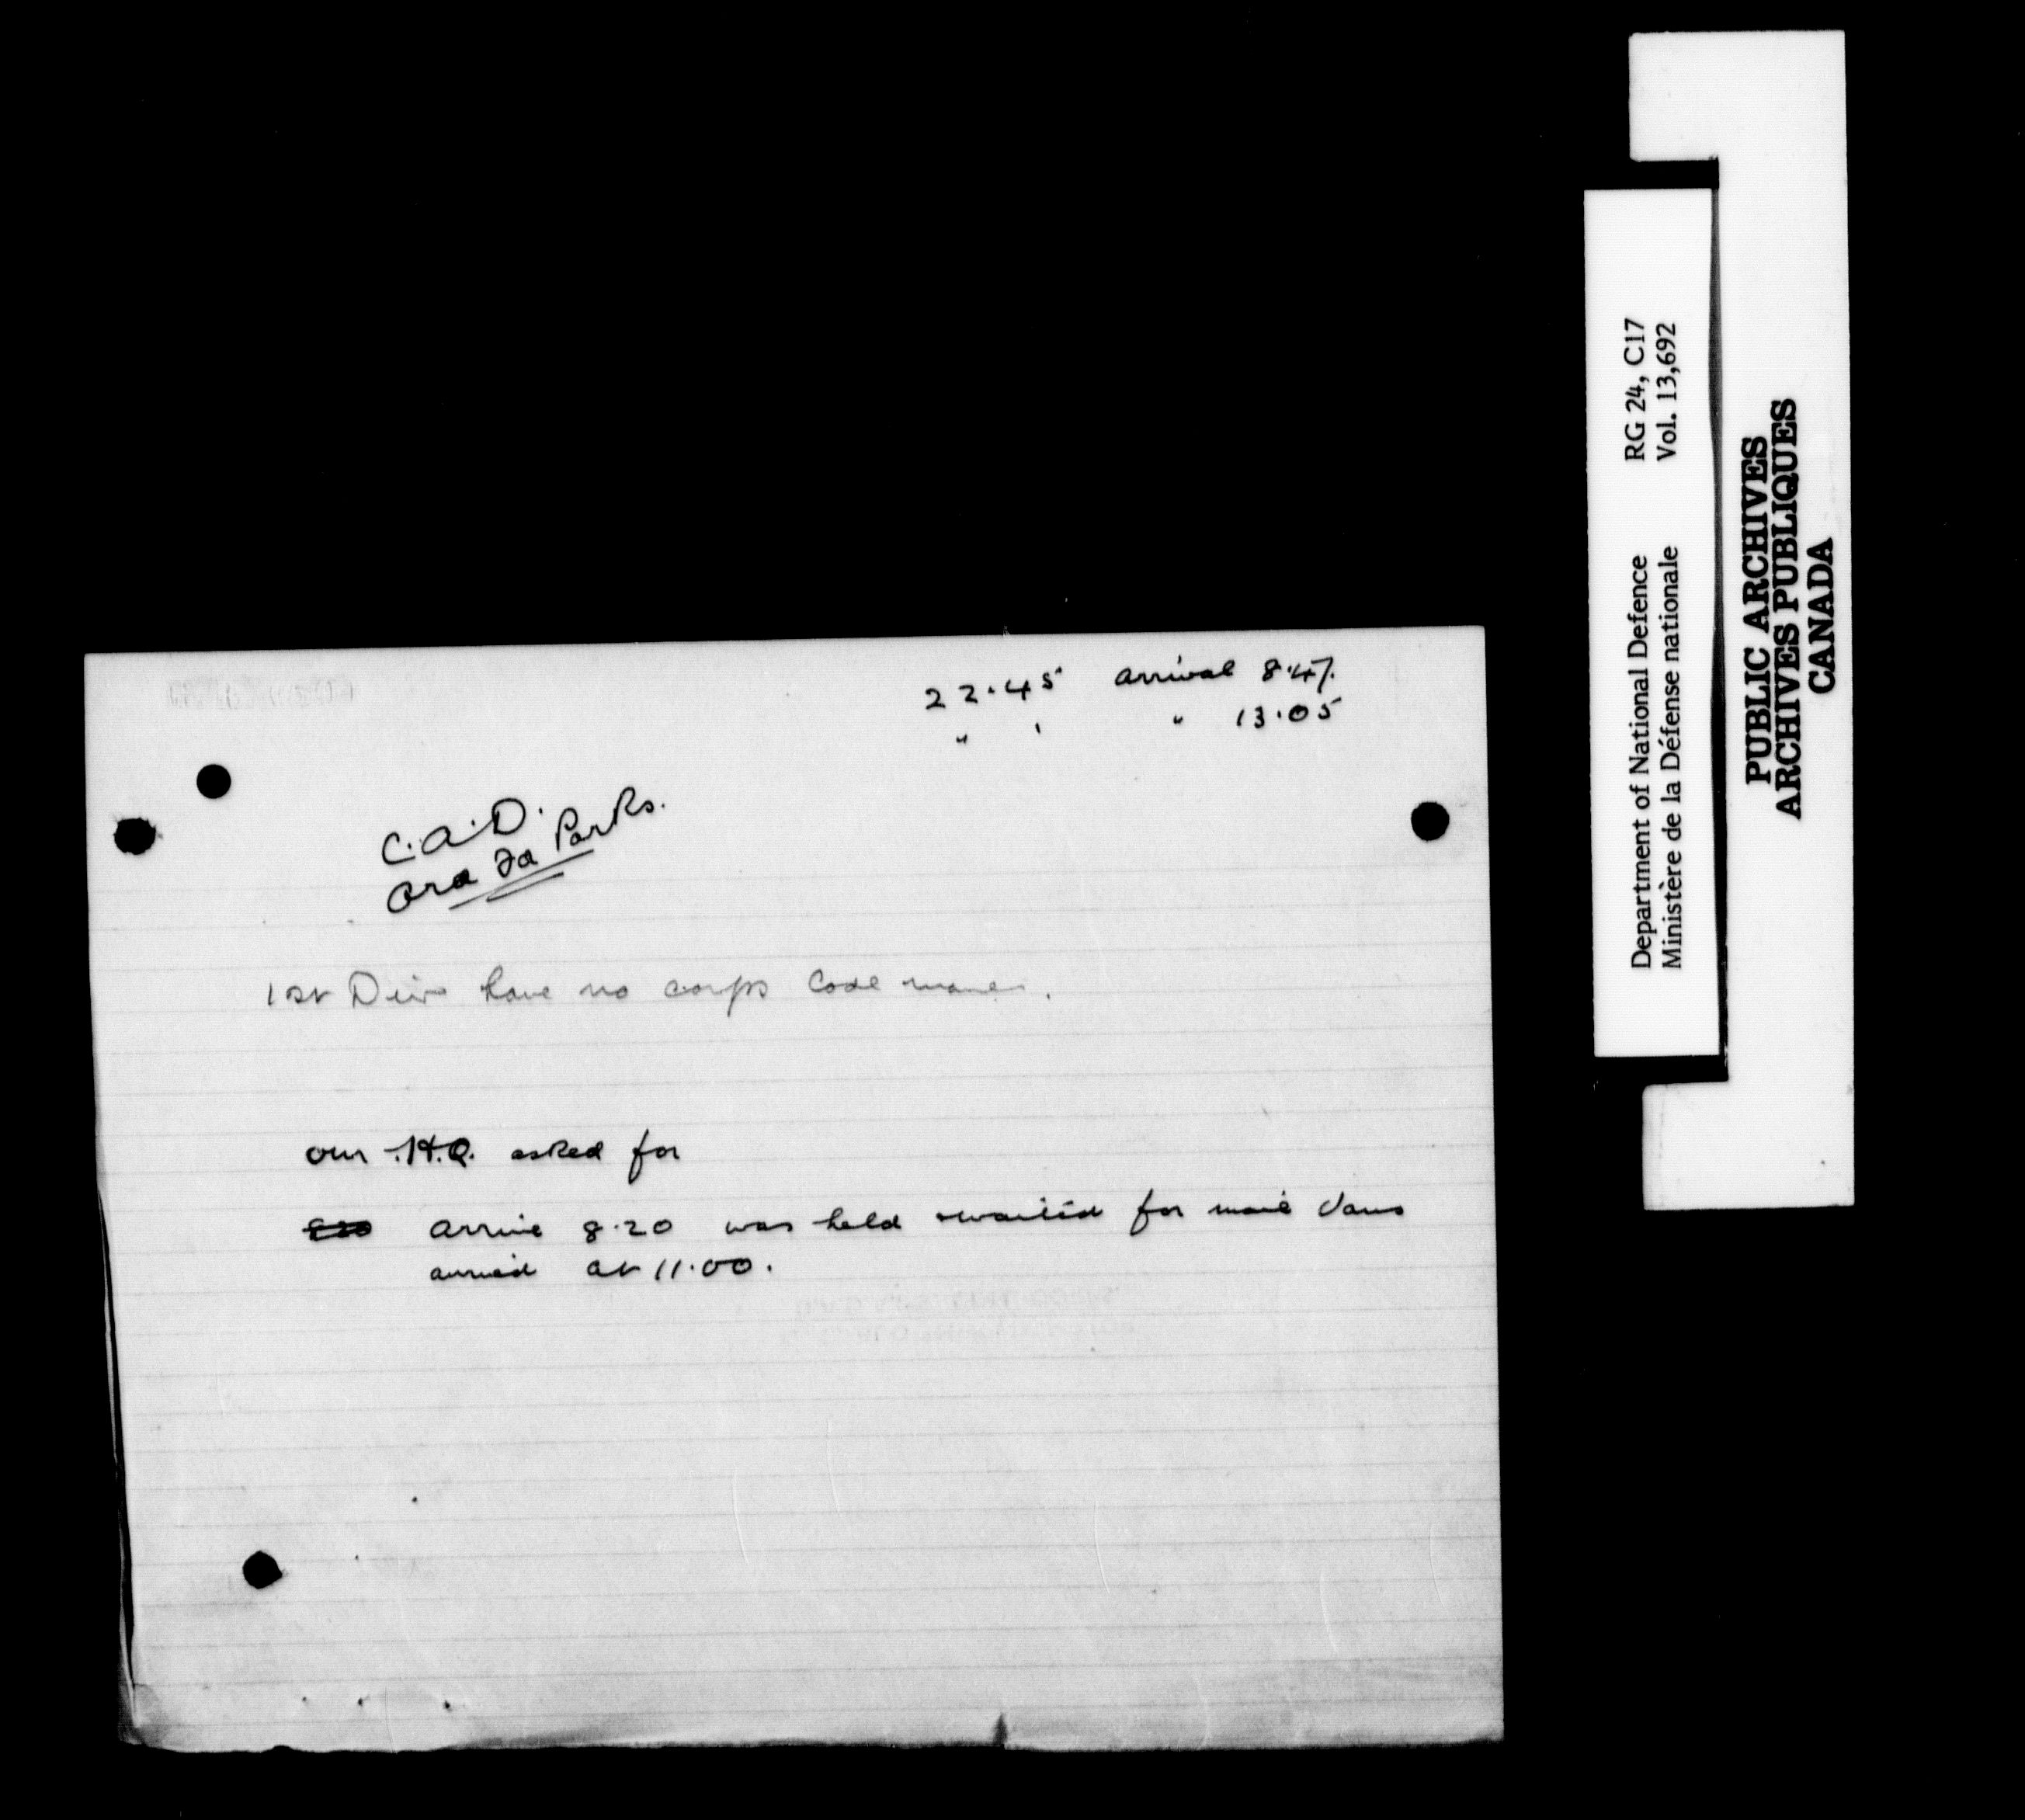 22.45 arrival 8.47.
" ' " 13.05
C.A.D.
Ord Fd Parks.
1st Div have no corps Code names.
our .H.Q. asked for
820 arrive 8.20 was held awaited for mail vans
arrived at 11.00.
Department of National Defence RG 24, C17
Ministère de la Défense nationale Vol. 13,692
PUBLIC ARCHIVES
ARCHIVES PUBLIQUES
CANADA